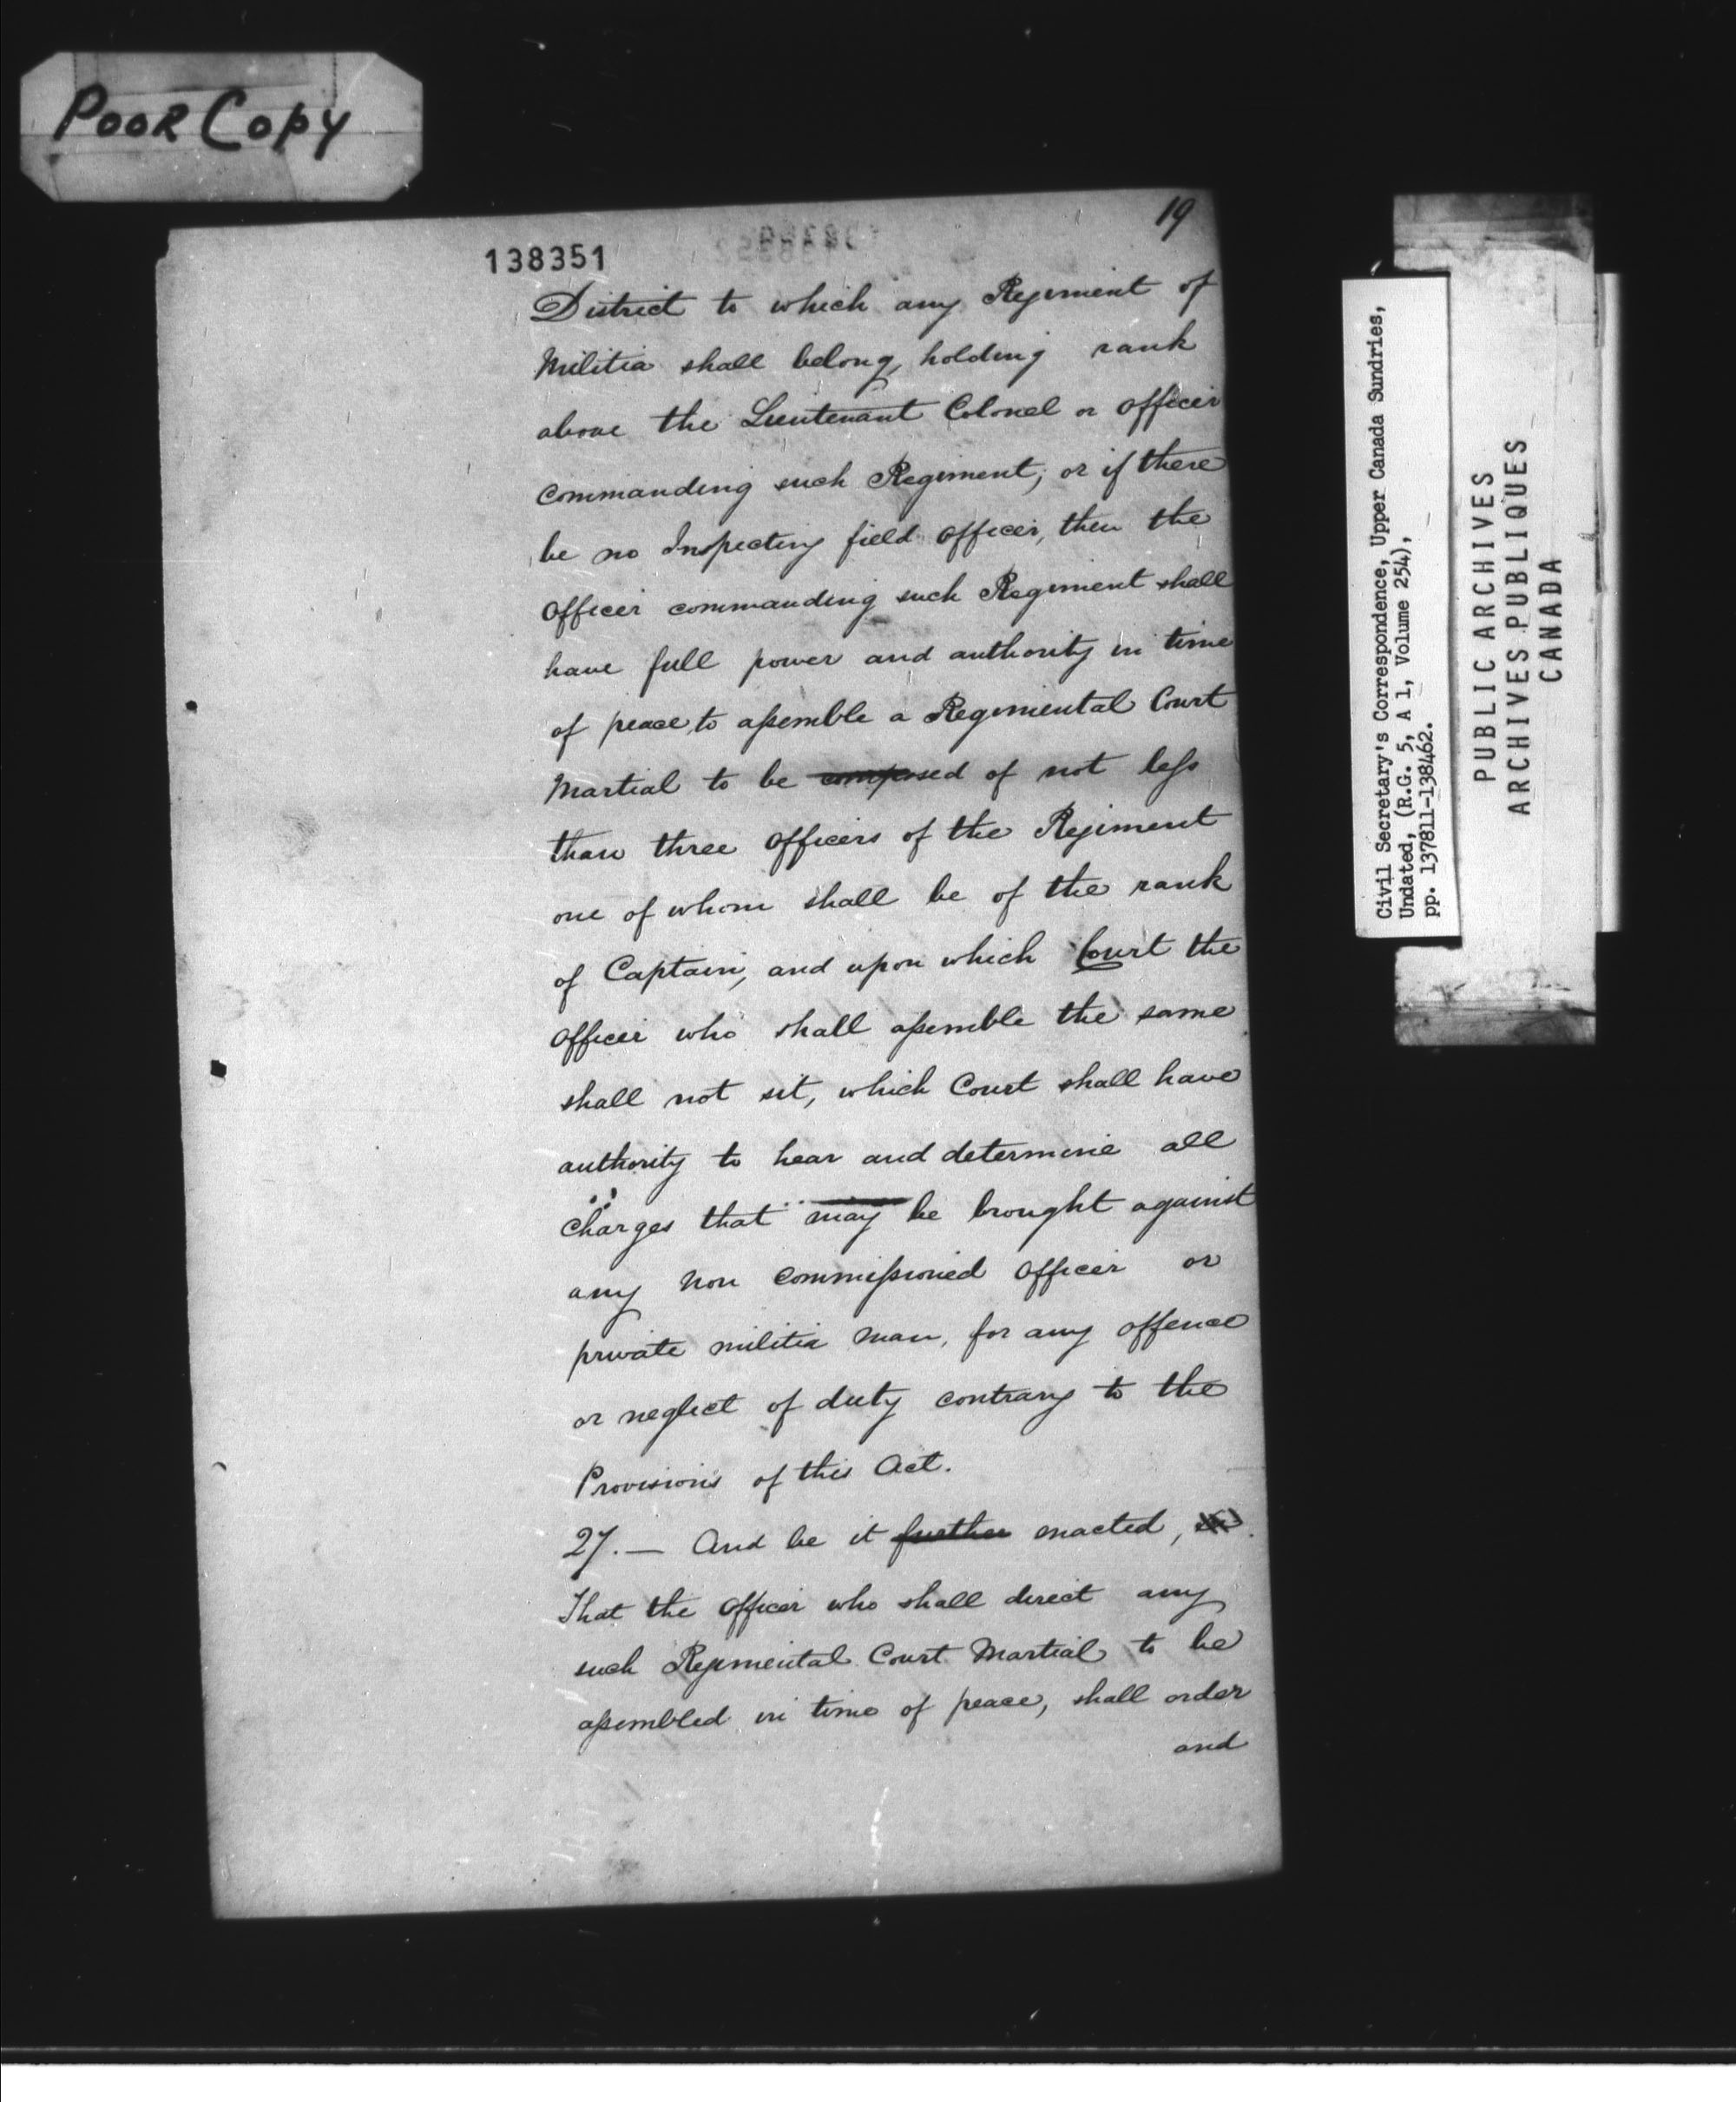 Poor Copy
19
138351
District to which any Regiment of
Militia shall belong, holding rank
above the Lieutenant Colonel or officer
commanding such Regiment; or if there
be no Inspecting field officer, then the
officer commanding such Regiment shall
have full power and authority in time
of peace, to assemble a Regimental Court
Martial to be composed of not less
than three officers of the Regiment
one of whom shall be of the rank
of Captain, and upon which Court the
officer who shall assemble the same
shall not sit, which Court shall have
authority to hear and determine all
charges that may be brought against
any non commissioned officer or
private militia man, for any offence
or neglect of duty contrary to the
Provisions of this Act.
27. — And be it further enacted,
That the officer who shall direct any
such Regimental Court Martial to be
assembled in time of peace, shall order
and
Civil Secretary's Correspondence, Upper Canada Sundries,
Undated, (R.G. 5, A 1, Volume 254),
pp. 137811-138462.
PUBLIC ARCHIVES
ARCHIVES PUBLIQUES
CANADA